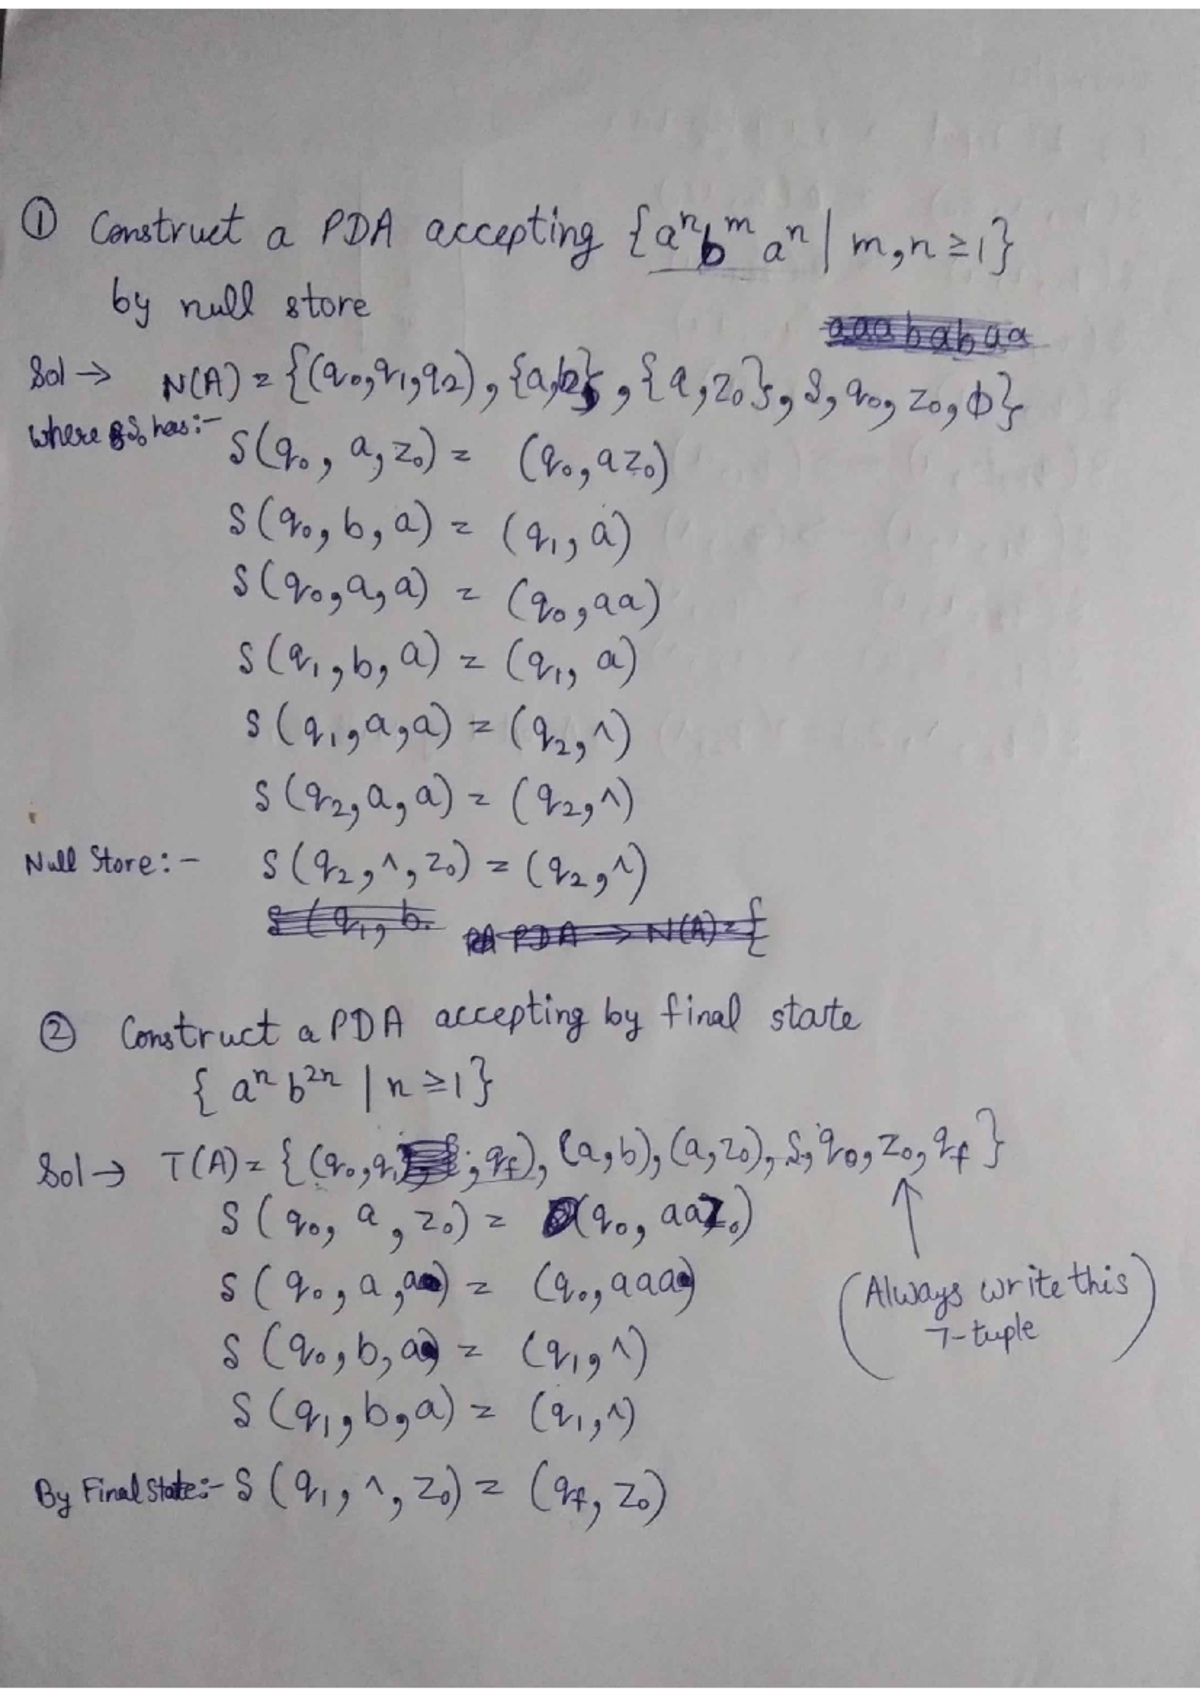 ① Construct a PDA accepting {aⁿbᵐaⁿ | m,n ≥ 1}
by null store
aaababaa
Sol → N(A) = {(q₀,q₁,q₂), {a,b}, {a,z₀}, δ, q₀, z₀, ϕ}
where δ has:-
δ(q₀, a, z₀) = (q₀, az₀)
δ(q₀, b, a) = (q₁, a)
δ(q₀, a, a) = (q₀, aa)
δ(q₁, b, a) = (q₁, a)
δ(q₁, a, a) = (q₂, ^)
δ(q₂, a, a) = (q₂, ^)
Null Store:- δ(q₂, ^, z₀) = (q₂, ^)
δ(q₁, b.
PDA → N(A) = {
② Construct a PDA accepting by final state
{ aⁿ b²ⁿ | n ≥ 1}
Sol → T(A) = {(q₀,q₁, q_f), (a,b), (a,z₀), δ, q₀, z₀, q_f }
δ(q₀, a, z₀) = (q₀, aaz₀)
δ(q₀, a, a) = (q₀, aaa)
(Always write this
7-tuple)
δ(q₀, b, a) = (q₁, ^)
δ(q₁, b, a) = (q₁, ^)
By Final State:- δ(q₁, ^, z₀) = (q_f, z₀)